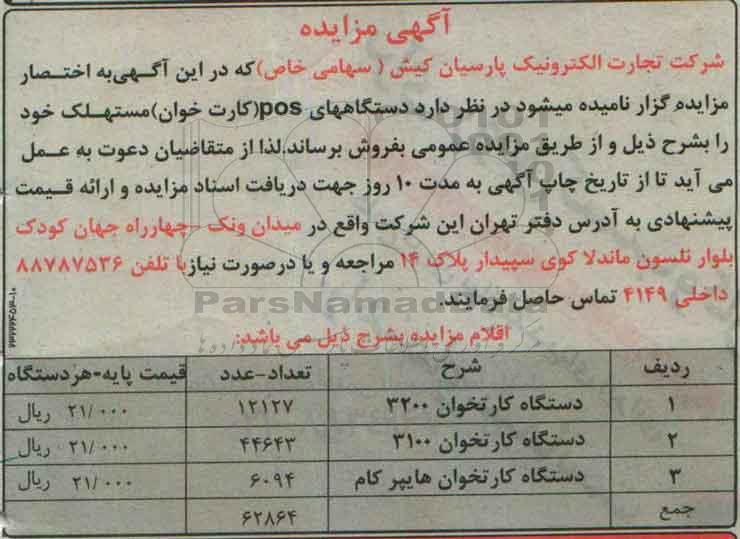 آگهی مزایده
شرکت تجارت الکترونیک پارسیان کیش ( سهامی خاص)که در این آگهی‌به اختصار
مزایده گزار نامیده میشود در نظر دارد دستگاههای pos(کارت خوان)مستهلک خود
را بشرح ذیل و از طریق مزایده عمومی بفروش برساند.لذا از متقاضیان دعوت به عمل
می آید تا از تاریخ چاپ آگهی به مدت ۱۰ روز جهت دریافت اسناد مزایده و ارائه قیمت
پیشنهادی به آدرس دفتر تهران این شرکت واقع در میدان ونک -چهارراه جهان کودک
بلوار نلسون ماندلا کوی سپیدار پلاک ۱۴ مراجعه و یا درصورت نیازبا تلفن ۸۸۷۸۷۵۳۶
داخلی ۴۱۴۹ تماس حاصل فرمایند.
ParsNamadData
اقلام مزایده بشرح ذیل می باشد:
ردیف شرح تعداد-عدد قیمت پایه-هردستگاه
۱ دستگاه کارتخوان ۳۲۰۰ ۱۲۱۲۷ ۲۱/۰۰۰ ریال
۲ دستگاه کارتخوان ۳۱۰۰ ۴۴۶۴۳ ۲۱/۰۰۰ ریال
۳ دستگاه کارتخوان هایپر کام ۶۰۹۴ ۲۱/۰۰۰ ریال
جمع ۶۲۸۶۴